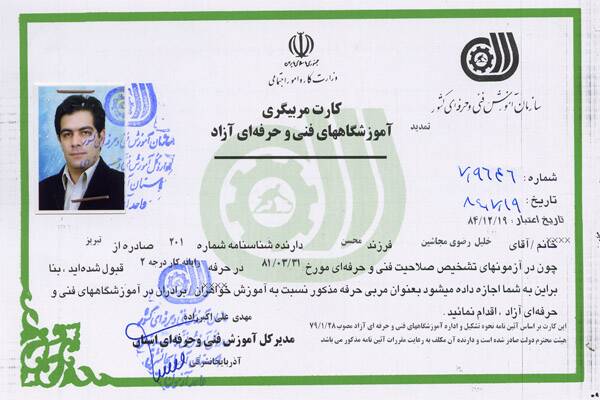 جمهوری اسلامی ایران
وزارت کار و امور اجتماعی
سازمان آموزش فنی و حرفه‌ای کشور
تمدید
کارت مربیگری
آموزشگاههای فنی و حرفه‌ای آزاد
شماره :
تاریخ :
تاریخ اعتبار : ۸۴/۱۲/۱۹
خانم / آقای خلیل رضوی مجاشین فرزند محسن دارنده شناسنامه شماره ۲۰۱ صادره از تبریز
چون در آزمونهای تشخیص صلاحیت فنی و حرفه‌ای مورخ ۸۱/۰۳/۳۱ در حرفه رایانه کار درجه ۲ قبول شده‌اید ، بنا
براین به شما اجازه داده میشود بعنوان مربی حرفه مذکور نسبت به آموزش خواهران / برادران در آموزشگاههای فنی و
حرفه‌ای آزاد ، اقدام نمائید .
این کارت بر اساس آئین نامه نحوه تشکیل و اداره آموزشگاههای فنی و حرفه ای آزاد مصوب ۷۹/۱/۲۸
هیئت محترم دولت صادر شده است و دارنده آن مکلف به رعایت مقررات آئین نامه مذکور می باشد
مهدی علی اکبرزاده
مدیر کل آموزش فنی و حرفه‌ای استان
آذربایجانشرقی